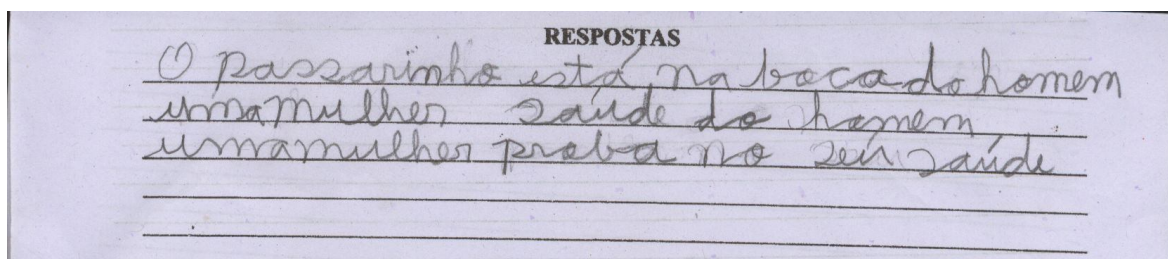 RESPOSTAS
O passarinho está na boca do homem
uma mulher saúde do homem
uma mulher proba no seu saúde